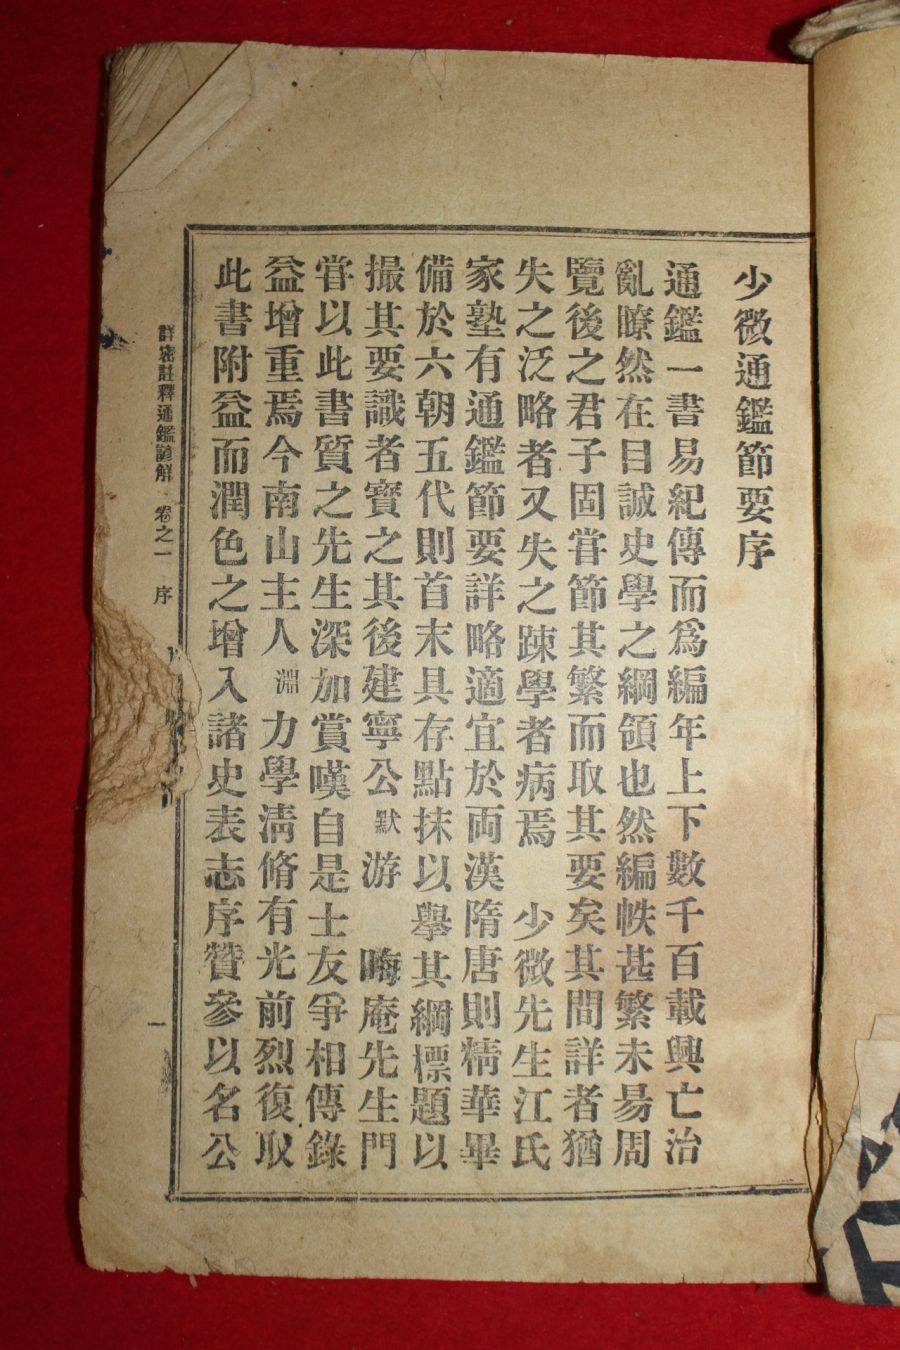 少微通鑑節要序
通鑑一書易紀傳而爲編年上下數千百載興亡治
亂瞭然在目誠史學之綱領也然編帙甚繁未易周
覽後之君子固甞節其繁而取其要矣其間詳者猶
失之泛略者又失之踈學者病焉 少微先生江氏
家塾有通鑑節要詳略適宜於両漢隋唐則精華畢
備於六朝五代則首末具存點抹以擧其綱標題以
撮其要識者寶之其後建寧公默游 晦庵先生門
甞以此書質之先生深加賞嘆自是士友爭相傳錄
益增重焉今南山主人淵力學淸脩有光前烈復取
此書附益而潤色之增入諸史表志序贊參以名公
詳密註釋通鑑諺解 卷之一 序
一